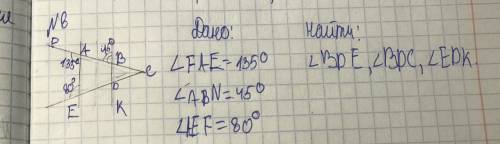 N 6
Дано:
Найти:
∠FAE=135°
∠ABN=45°
∠IEF=80°
∠BDE, ∠BDC, ∠EDK.
P
A
45°
B
135°
C
80°
D
E
K